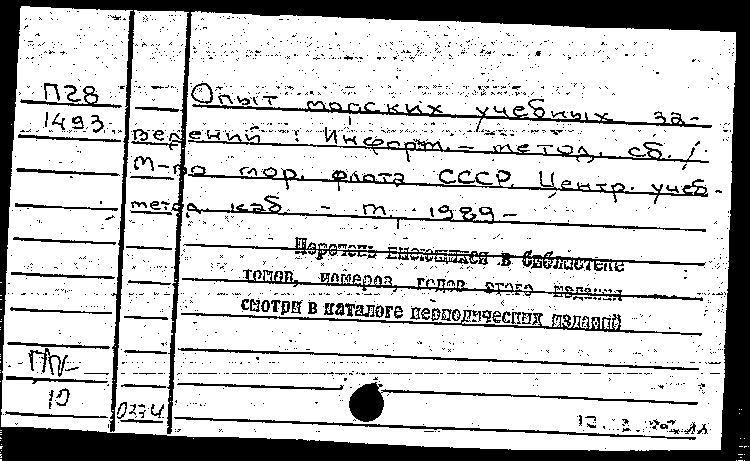 П28
1493
Опыт морских учебных за-
ведений : Информ.-метод. сб. /
М-во мор. флота СССР. Центр. учеб.-
метод каб. - М., 1989-
Перечень имеющихся в библиотеке
томов, номеров, годов этого издания
смотри в каталоге периодических изданий
10